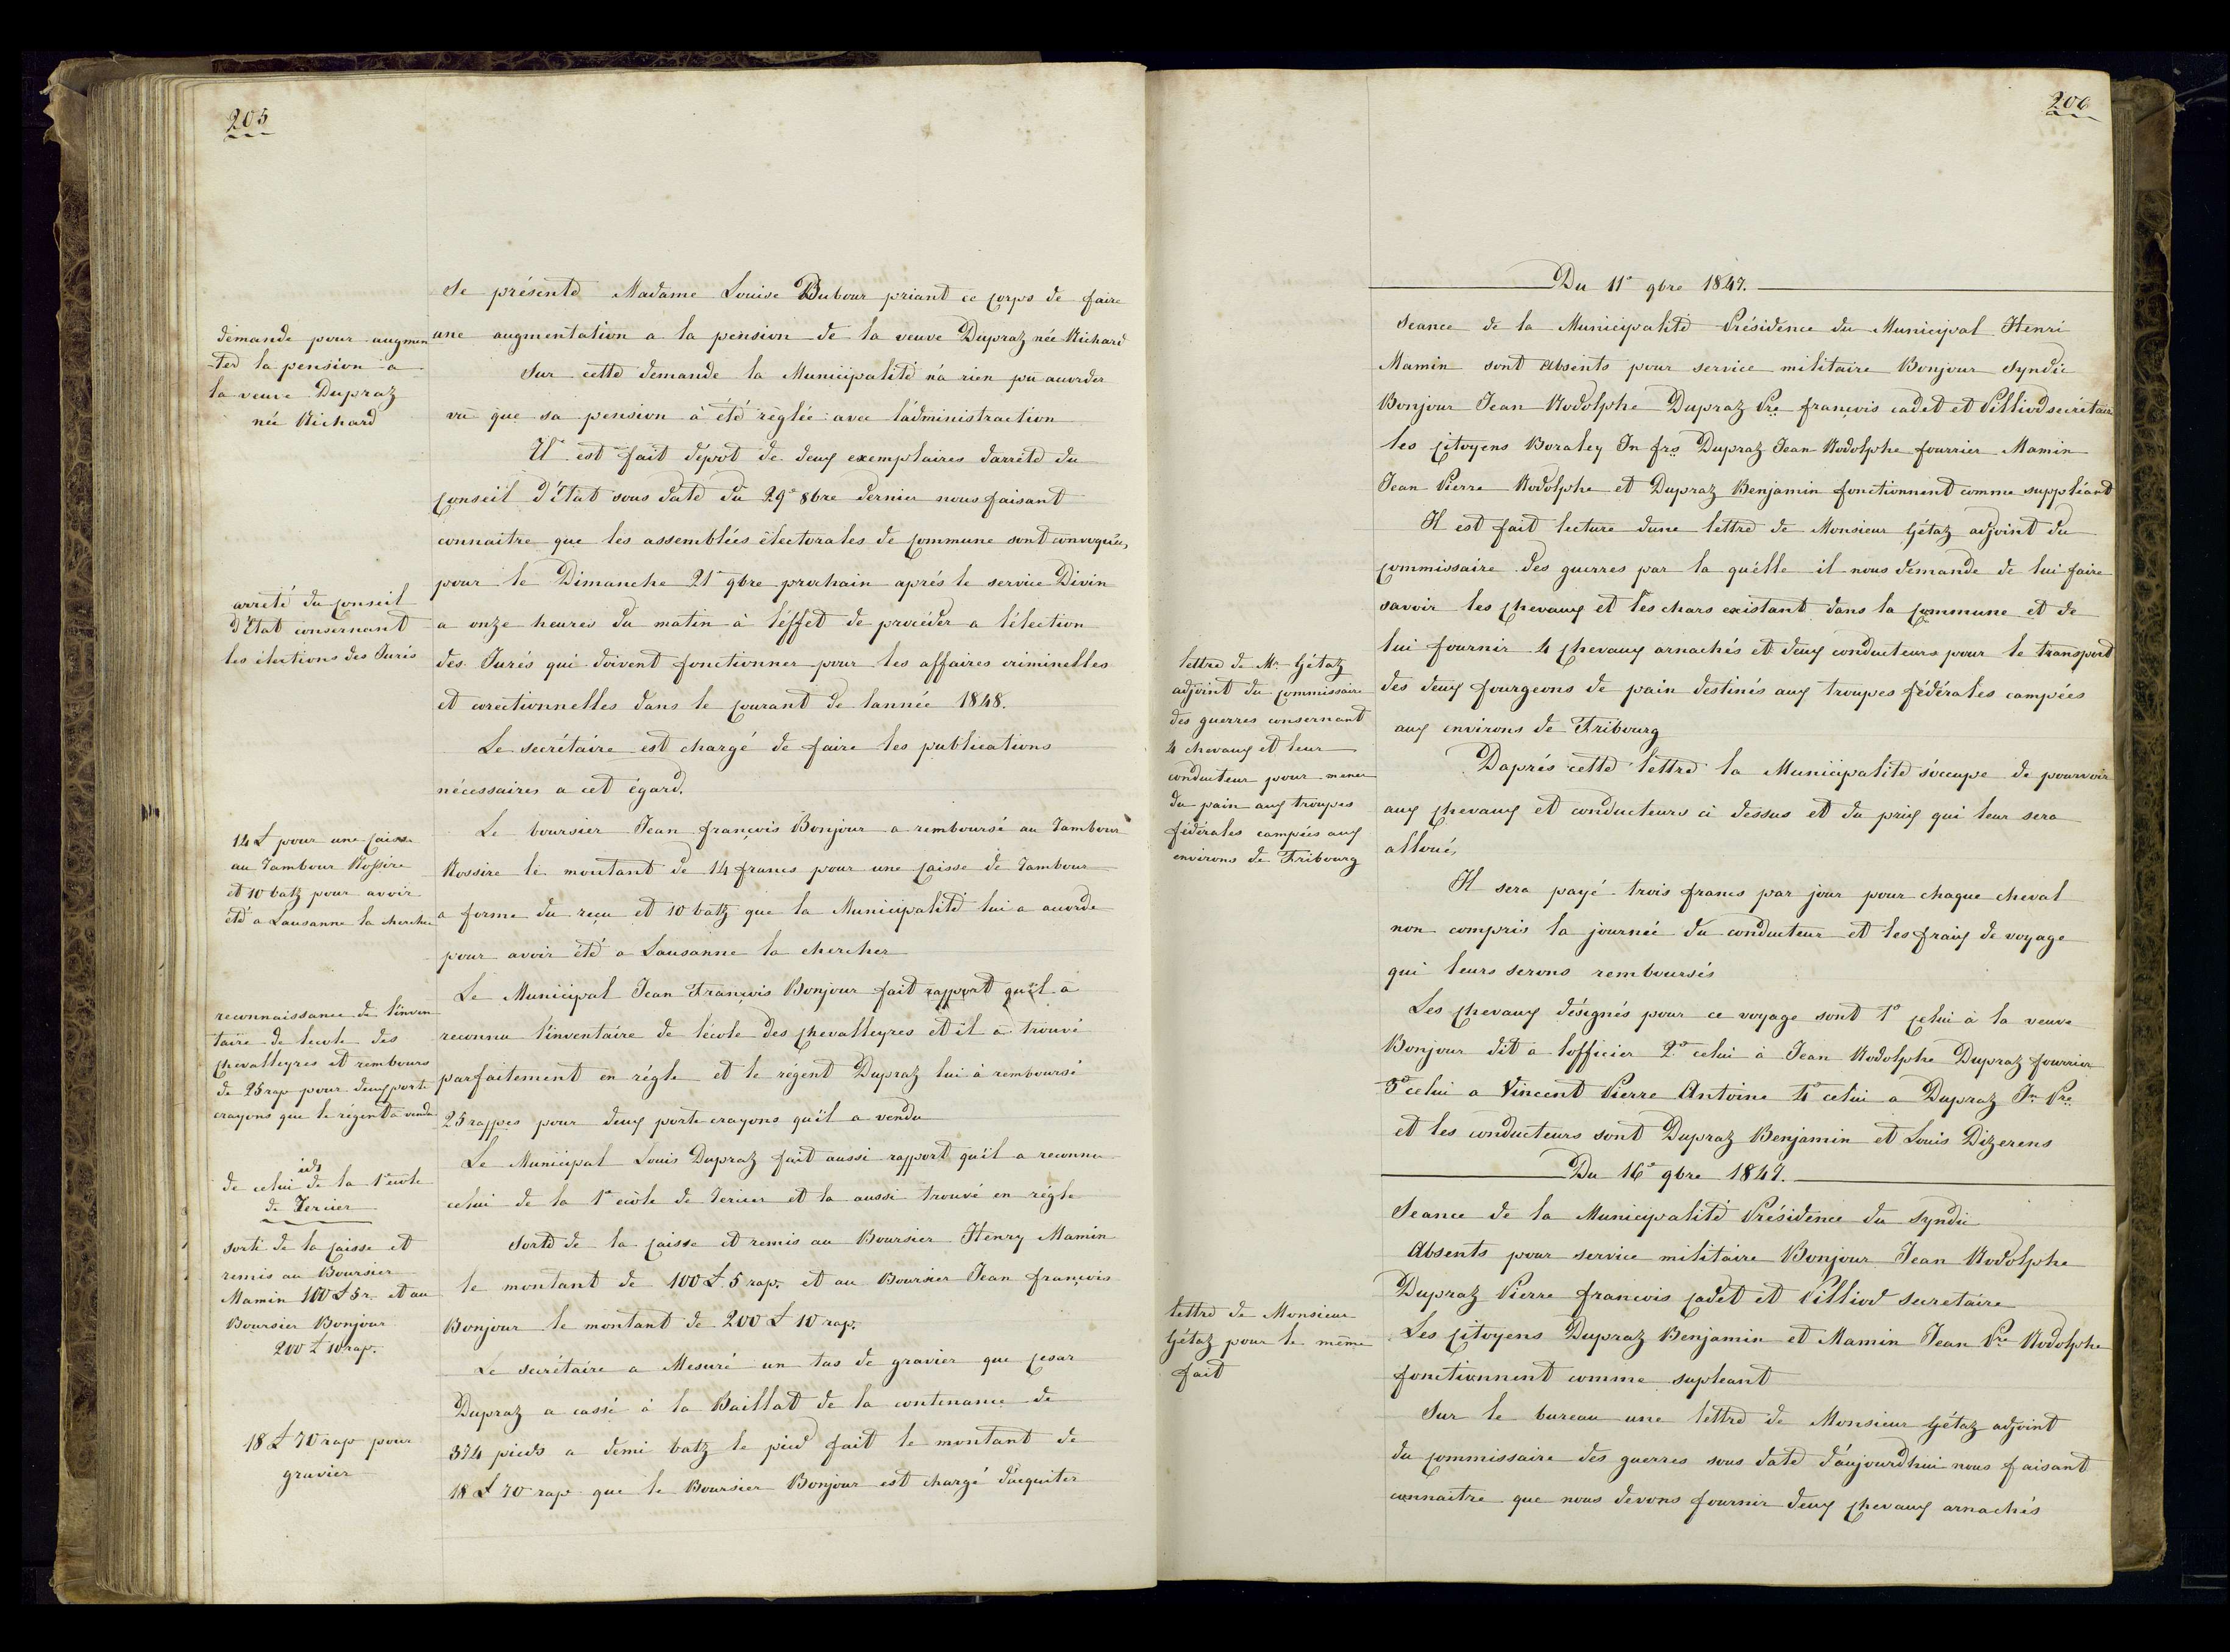 205
Se présente Madame Louise Bubour priant ce corps de faire
demande pour augmen
-ter la pension a
la veuve Dupraz
née Richard
une augmentation a la pension de la veuve Dupraz née Richard
Sur cette demande la Municipalité n'a rien pû accorder
vû que sa pension à été réglée avec l'administraction
Il est fait dépot de deux exemplaires darrêté du
Conseil d'Etat sous date du 29e 8bre dernier nous faisant
connaitre que les assemblées électorales de Commune sont convoquées,
pour le Dimanche 21e 9bre prochain aprés le service Divin
arreté du Conseil
d'Etat consernant
les élections des Jurés
a onze heures du matin à l'éffet de procéder a l'élection
des Jurés qui doivent fonctionner pour les affaires criminelles
et corectionnelles dans le courant de lannée 1848.
Le secrétaire est chargé de faire les publications
nécessaires a cet égard.
14 L pour une Caisse
au Tambour Rossire
et 10 batz pour avoir
été a Lausanne la chercher
Le boursier Jean françois Bonjour a remboursé au Tambour
Rossire le montant de 14 francs pour une Caisse de Tambour
a forme du reçu et 10 batz que la Municipalité lui a acorde
pour avoir été a Lausanne la chercher
reconnaissance de l'inven
taire de lecole des
Chevalleyres et rembours
de 25 rap pour deux porte
crayons que le régent a vendu
Le Municipal Jean François Bonjour fait rapport qu'il a
reconnu l'inventaire de lécole des Chevalleyres et il a trouvé
parfaitement en régle et le régent Dupraz lui à remboursé
25 rappes pour deux porte crayons qu'il a vendu
ids
de celui de la 1e école
de Tercier
Le Municipal Louis Dupraz fait aussi rapport qu'il a reconnu
celui de la 1e ecòle de Tercier et la aussi trouvé en régle
sorti de la Caisse et
remis au Boursier
Mamin 100 L 5 r. et au
Boursier Bonjour
200 L 10 rap.
Sorte de la Caisse et remis au Boursier Henry Mamin
le montant de 100 L. 5 rap. et au Boursier Jean françois
Bonjour le montant de 200 L 10 rap.
Le secrétaire a Mesuré un tas de gravier que Cesar
Dupraz a cassé à la Baillat de la contenance de
18 L 70 rap pour
gravier
374 pieds a demi batz le pied fait le montant de
18 L 70 rap que le Boursier Bonjour est chargé d'aequiter
206
Du 11e 9bre 1847.
Seance de la Municipalité Présidence du Municipal Henri
Mamin sont Absents pour service militaire Bonjour Syndic
Bonjour Jean Rodolphe Dupraz Pre françois cadet et Pilliod secrétaire
les Citoyens Boraley Jn frs Dupraz Jean Rodolphe fourrier Mamin
Jean Pierre Rodolphe et Dupraz Benjamin fonctionnent comme suppléant
Il est fait lecture dune lettre de Monsieur Gétaz adjoint du
commissaire des guerres par la quélle il nous demande de lui faire
savoir les Chevaux et les chars existant dans la Commune et de
lettre de Mr Gétaz
adjoint du Commissaire
des guerres consernant
4 chevaux et leur
conducteur pour mener
du pain aux troupes
fédérales campées aux
environs de Fribourg
lui fournir 4 Chevaux arnachés et deux conducteurs pour le transport
des deux fourgeons de pain destinés aux troupes fédérales campées
aux environs de Fribourg
Daprés cette lettre la Municipalité s'occupe de pourvoir
aux Chevaux et conducteurs ci dessus et du prix qui leur sera
alloué,
Il sera payé trois francs par jour pour chaque cheval
non compris la journée du conducteur et les fraix de voyage
qui leurs serons remboursés
Les Chevaux désignés pour ce voyage sont 1e Celui à la veuve
Bonjour dit a lofficier 2e celui à Jean Rodolphe Dupraz fourrier
3e celui a Vincent Pierre Antoine 4e celui a Dupraz Jn Pre
et les conducteurs sont Dupraz Benjamin et Louis Dizerens
Du 16e 9bre 1847.
Seance de la Municipalité Présidence du Syndic
Absents pour service militaire Bonjour Jean Rodolphe
Dupraz Pierre francois Cadet et Pilliod secretaire
lettre de Monsieur
Gétaz pour le même
fait
Les Citoyens Dupraz Benjamin et Mamin Jean Pre Rodolphe
fonctionnent comme supleant
Sur le bureau une lettre de Monsieur Gétaz adjoint
du Commissaire des guerres sous date d'aujourdhui nous faisant
connaitre que nous devons fournir deux Chevaux arnachés